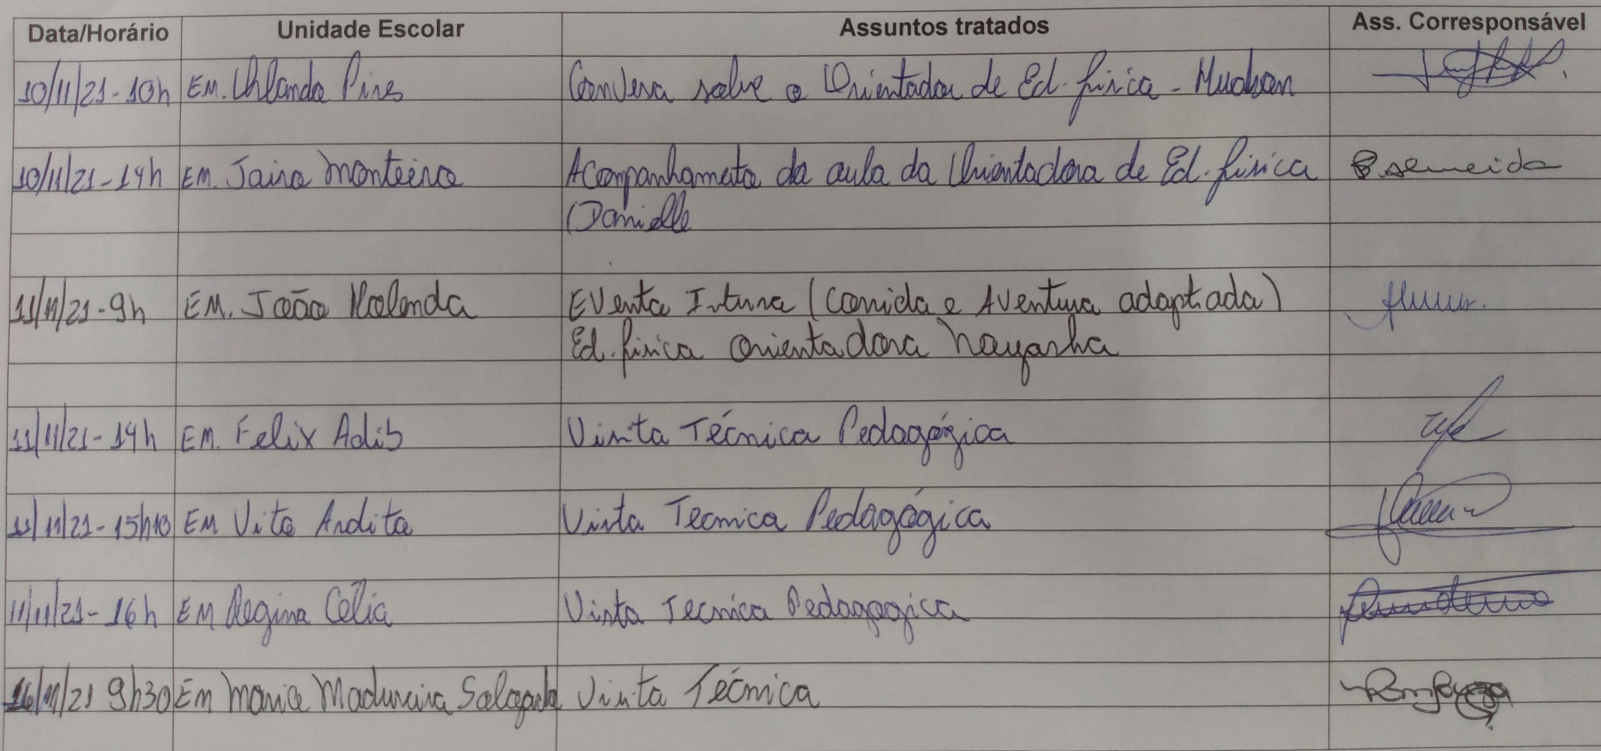 Data/Horário Unidade Escolar Assuntos tratados Ass. Corresponsável
10/11/21-10h EM. Orlando Pires Conversa sobre o Orientador de Ed. física - Hudson
10/11/21-14h EM. Jairo Monteiro Acompanhamento da aula da Orientadora de Ed. física
Danielle
11/11/21-9h EM. João Holanda Evento Interno (Corrida e Aventura adaptada)
Ed. física orientadora Nayarha
11/11/21-14h EM. Felix Adib Visita Técnica Pedagógica
11/11/21-15h10 EM Vito Visita Tecnica Pedagógica
11/11/21-16h EM Regina Célia Visita Tecnica Pedagogica
16/11/21 9h30 Em Maria Madureira Salogado Visita Técnica